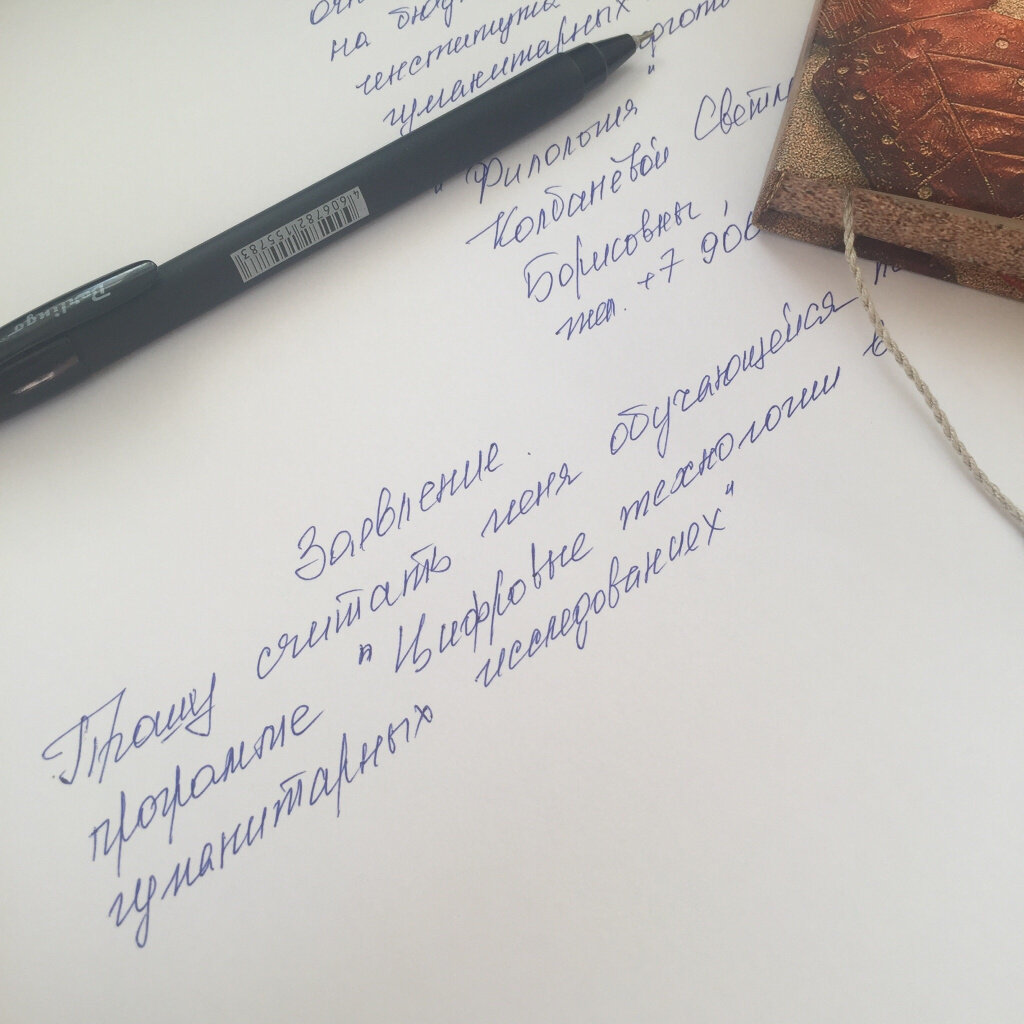 на бюд
института
гуманитарных
"Филология"
Колбаневой Светл
Борисовны,
тел. +7 906
Заявление.
Прошу считать меня обучающейся п
программе "Цифровые технологии в
гуманитарных исследованиях"
4606782155783
Berlingo